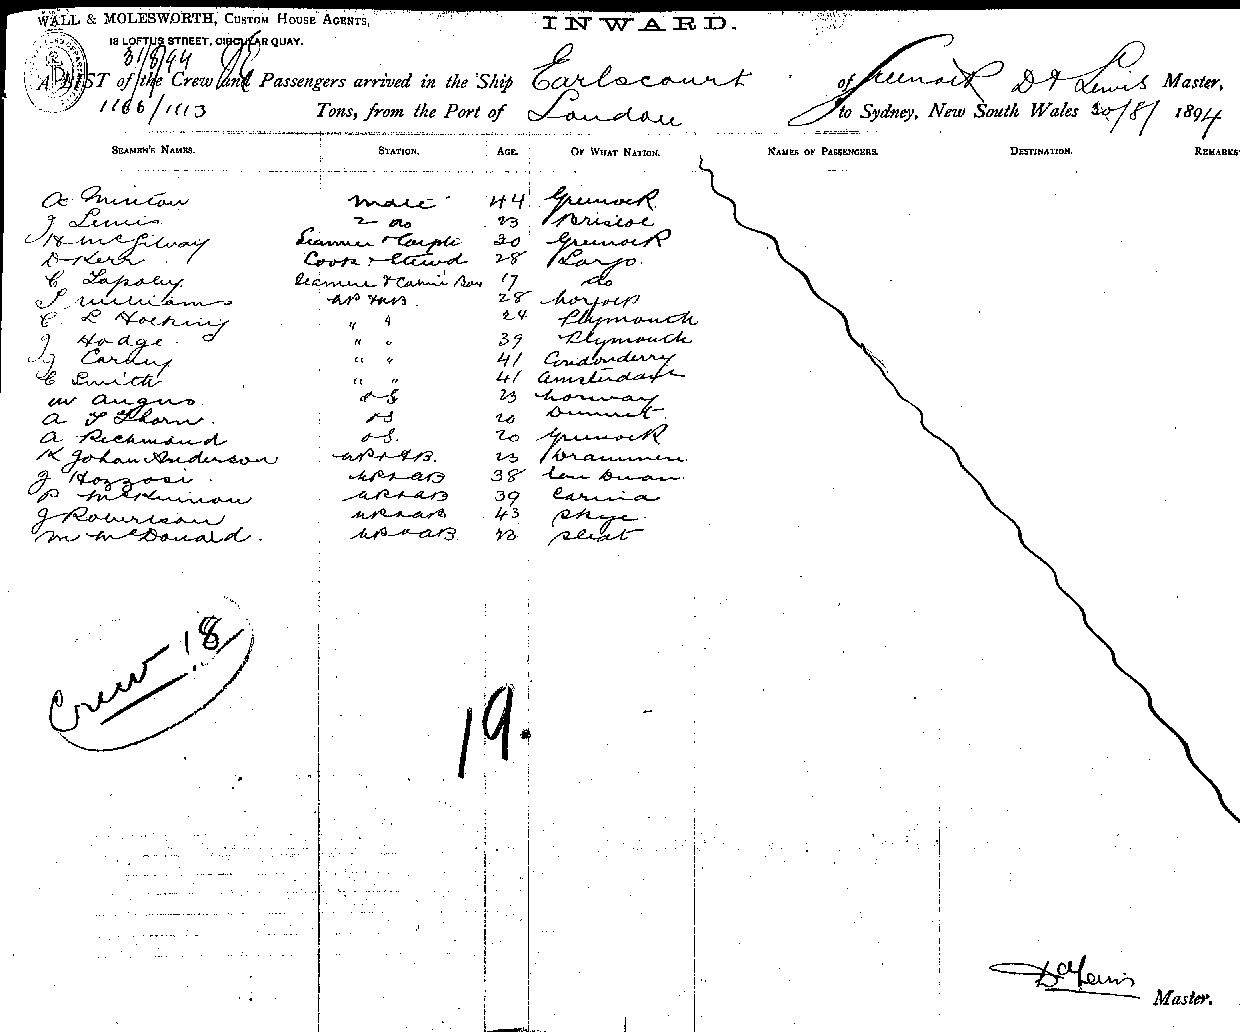 WALL & MOLESWORTH, CUSTOM HOUSE AGENTS,
INWARD.
18 LOFTUS STREET, CIRCULAR QUAY.
31/8/94
A LIST of the Crew and Passengers arrived in the Ship Earlscourt of Greenock D Lewis Master,
1166/1113 Tons, from the Port of London to Sydney, New South Wales 30/8/ 1894
SEAMEN'S NAMES. STATION. AGE. OF WHAT NATION. NAMES OF PASSENGERS. DESTINATION. REMARKS
A Minton Mate 44 Greenock
J Lewis 2 do 23 Briscoe
H McGilvay Seaman & Carptr 30 Greenock
D Kerr Cook & Stewd 28 Largo
C 17 do
S Williams AB 28
C L Hocking " " 24 Plymouth
J Hodge " " 39 Plymouth
J Carney " " 41 Londonderry
C Smith " " 41 Amsterdam
W Angus OS 23 Norway
A S Thorn OS 20
A Richmond OS. 20 Greenock
K Johan Anderson AB. 23 Drammen
J Hozzosi AB 38
P McKinnon AB 39
J Robertson AB 43 Skye
M McDonald. AB 23 Sleat
Crew 18
19.
D Lewis
Master.